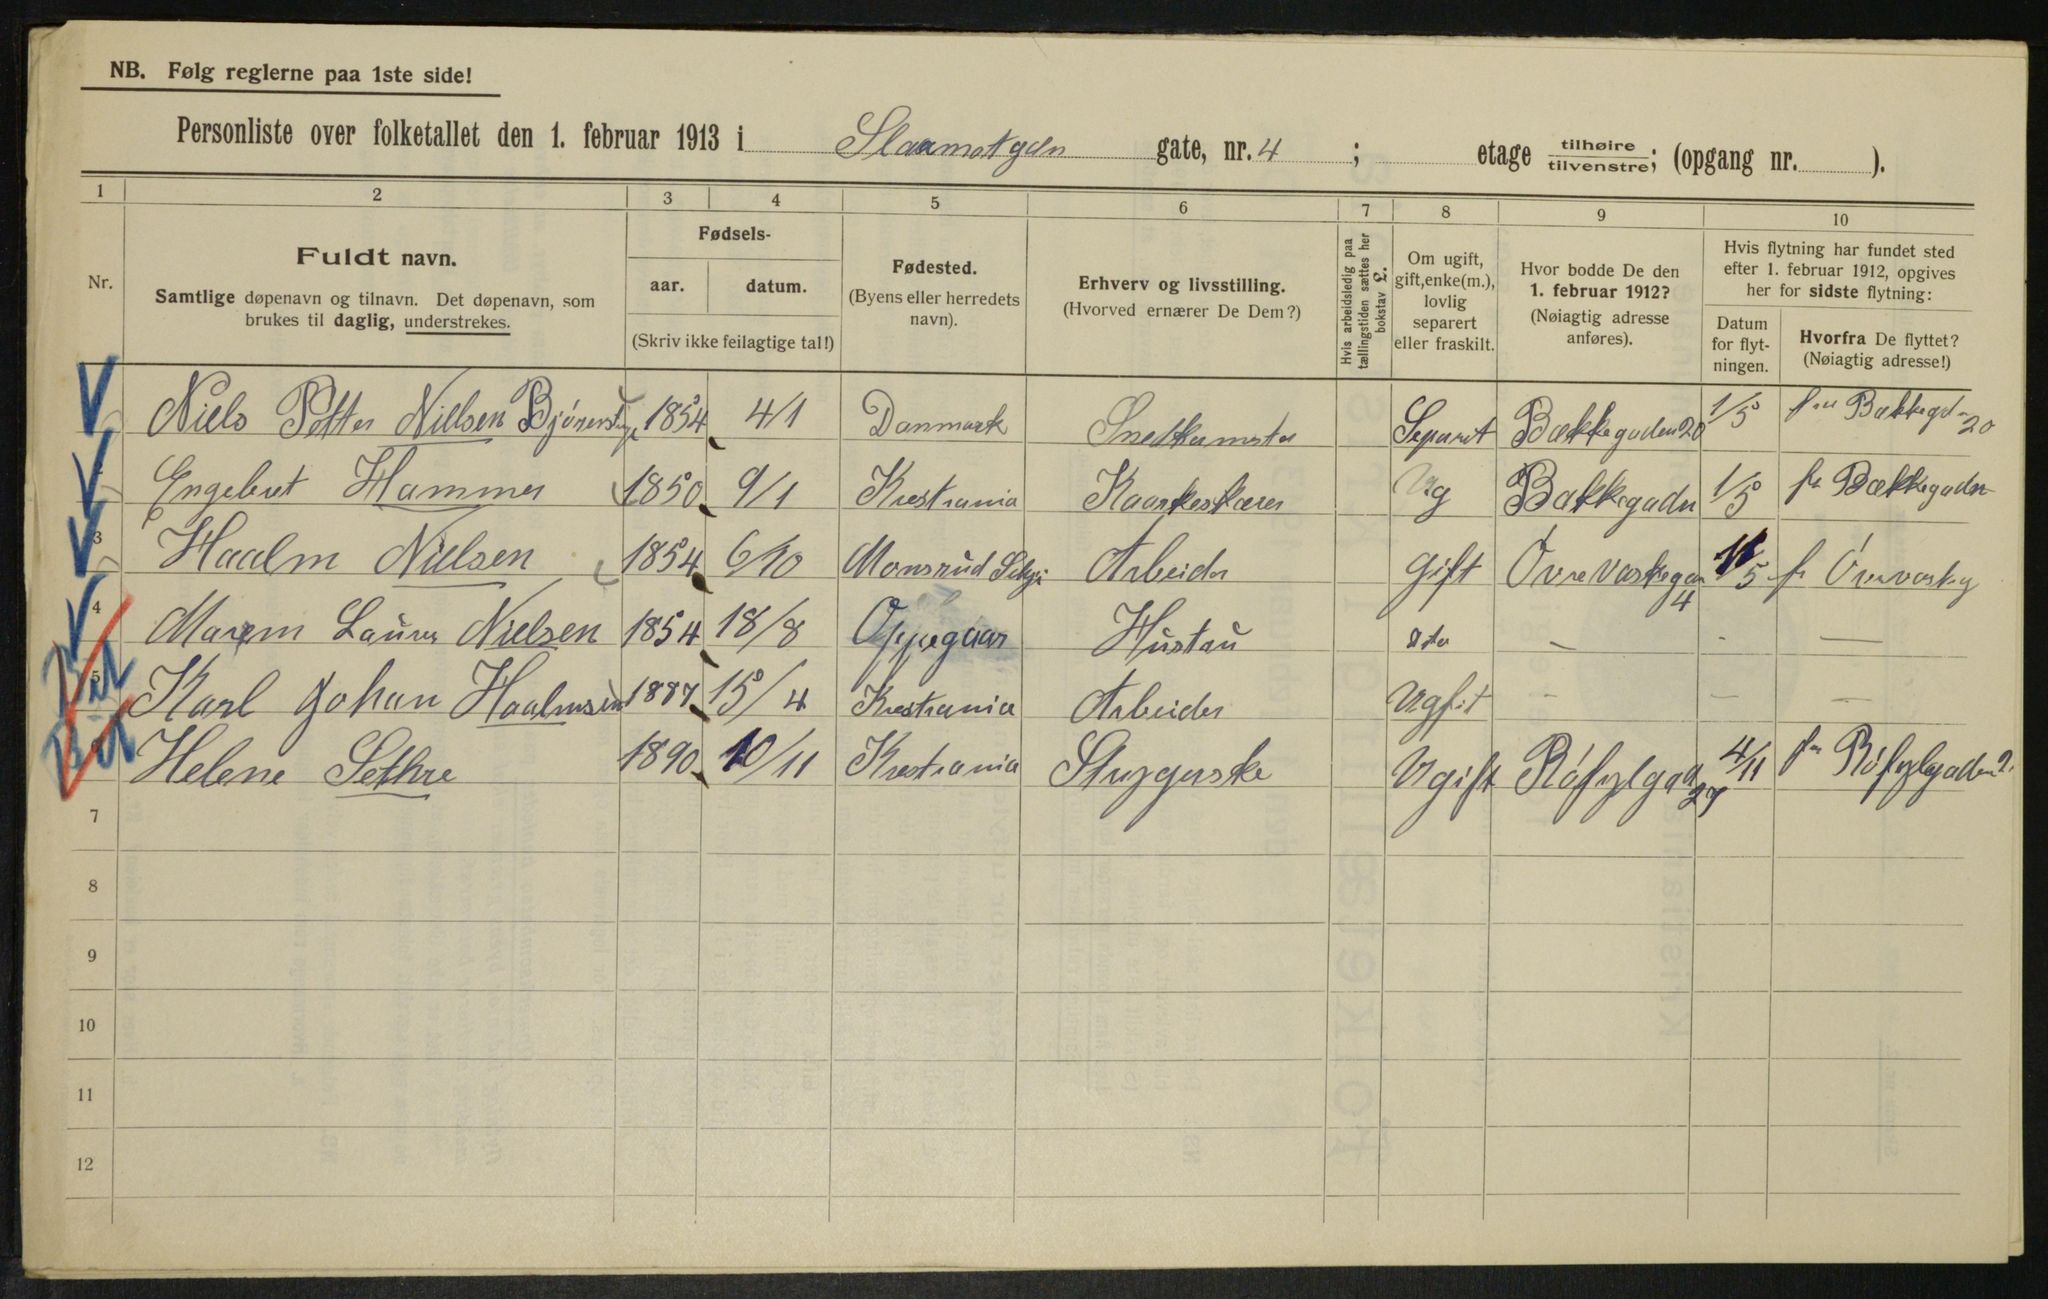 NB. Følg reglerne paa 1ste side!
Personliste over folketallet den 1. februar 1913 i Slaamotgdn gate, nr. 4 ; etage tilhøire/tilvenstre; (opgang nr. ).
1 2 3 4 5 6 7 8 9 10
Nr.
Fuldt navn.
Samtlige døpenavn og tilnavn. Det døpenavn, som
brukes til daglig, understrekes.
Fødsels-
aar. datum.
(Skriv ikke feilagtige tal!)
Fødested.
(Byens eller herredets
navn).
Erhverv og livsstilling.
(Hvorved ernærer De Dem?)
Hvis arbeidsledig paa
tællingstiden sættes her
bokstav L.
Om ugift,
gift, enke(m.),
lovlig
separert
eller fraskilt.
Hvor bodde De den
1. februar 1912?
(Nøiagtig adresse
anføres).
Hvis flytning har fundet sted
efter 1. februar 1912, opgives
her for sidste flytning:
Datum
for flyt-
ningen.
Hvorfra De flyttet?
(Nøiagtig adresse!)
Niels Petter Nielsen 1854 4/1 Danmark Snedkermster Separet Bækkegaden 20 1/5 fra Bækkegdn 20
Engebret Hammer 1850 9/1 Krestiania Kaarkeskærer Ug Bækkegadn 1/5 fr Bækkegadn
3 Haalm Nielsen 1854 6/10 Arbeider Gift Övre Vaskegan 4 1/5 fr Övrevaskeg
4 Maren Laura Nielsen 1854 18/8 Oppegaar Hustru — - —
5 Karl Johan Haalmsen 1887 15/4 Krestiania Arbeider Ugfit — — —
Helene Sethre 1890 10/11 Krestiania Strygerske Ugift Röfylgad 27 4/11 fra Röfylgaden 2
7
8
9
10
11
12